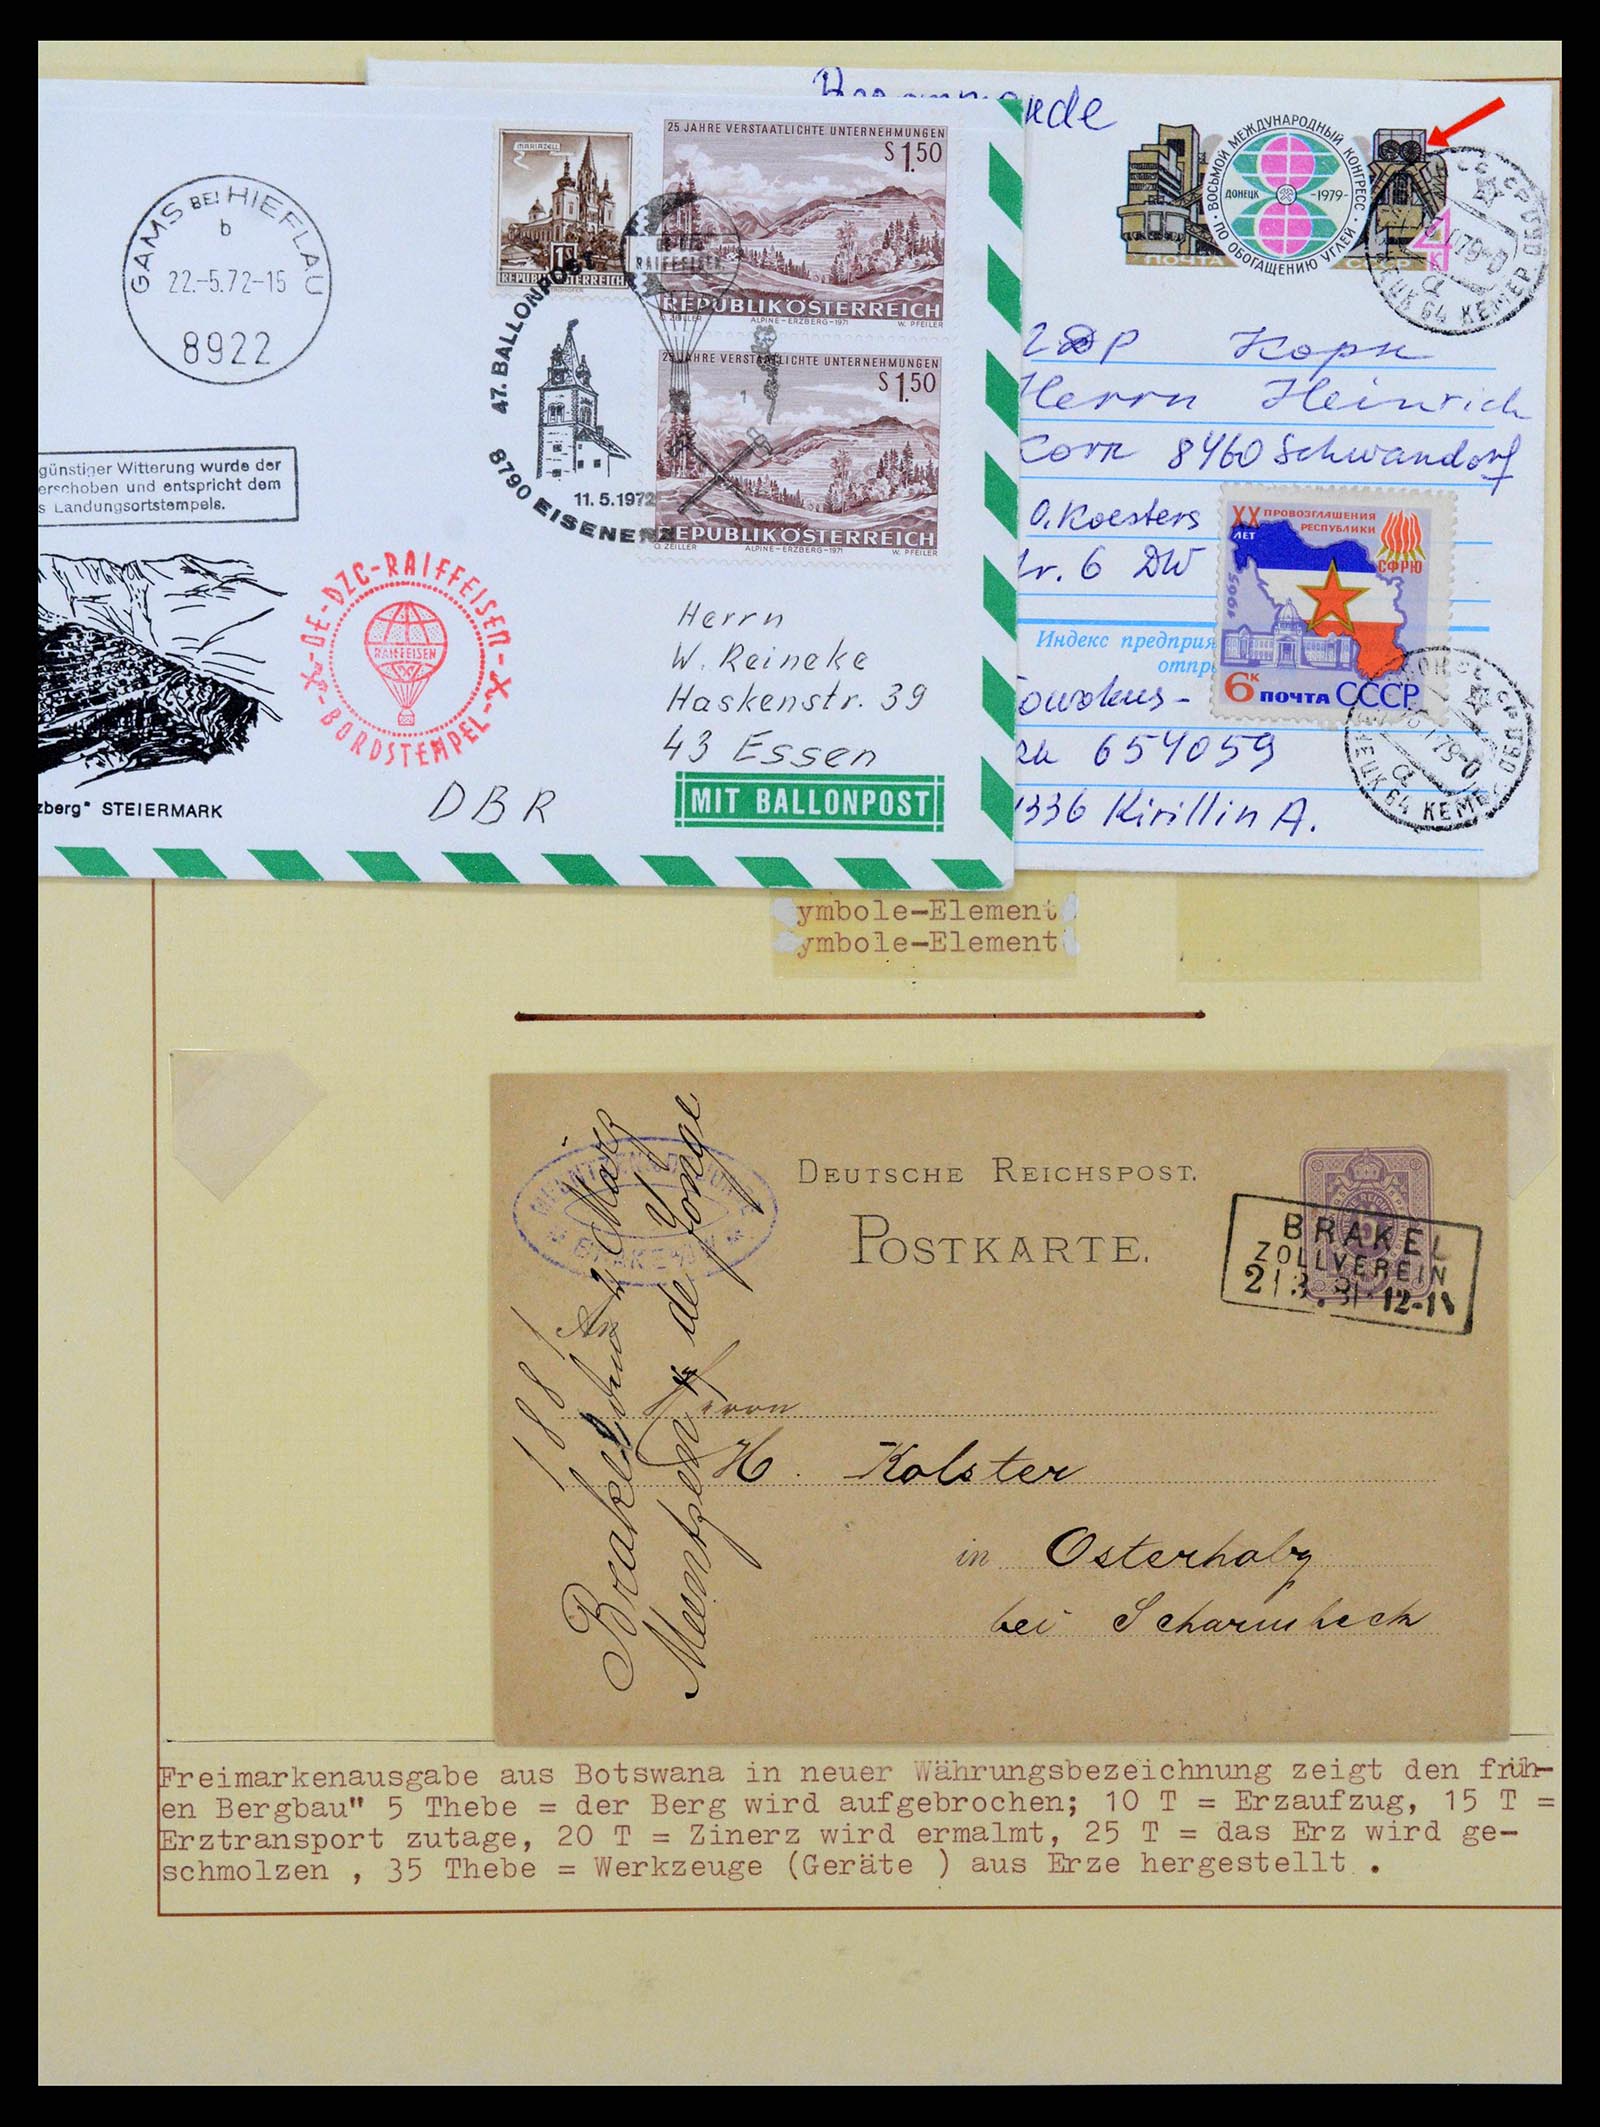 GAMS BEI HIEFLAU
b
22.-5.72-15
8922
günstiger Witterung wurde der
erschoben und entspricht dem
s Landungsortstempels.
zberg" STEIERMARK
DE-DZC-RAIFFEISEN
RAIFFEISEN
BORDSTEMPEL
DBR
MARIAZELL
REPUBLIK ÖSTERREICH
47. BALLONPOST
11.5.1972
8790 EISENERZ
RAIFFEISEN
25 JAHRE VERSTAATLICHTE UNTERNEHMUNGEN
S 1.50
REPUBLIK ÖSTERREICH
O. ZEILLER ALPINE-ERZBERG-1971 W. PFEILER
25 JAHRE VERSTAATLICHTE UNTERNEHMUNGEN
S 1.50
REPUBLIK ÖSTERREICH
O. ZEILLER ALPINE-ERZBERG-1971 W. PFEILER
Herrn
W. Reineke
Haskenstr. 39
43 Essen
MIT BALLONPOST
ВОСЬМОЙ МЕЖДУНАРОДНЫЙ КОНГРЕСС
ДОНЕЦК -1979-
ПО ОБОГАЩЕНИЮ УГЛЕЙ
ПОЧТА СССР
4к
Herrn Heinrich
Korn 8460 Schwandorf
O. Koesters
tr. 6 DW
Индекс предприя
отпр
654059
1336 Kirillin A.
XX ПРОВОЗГЛАШЕНИЯ
ЛЕТ РЕСПУБЛИКИ
СФРЮ
1965
6к ПОЧТА СССР
ymbole-Element
ymbole-Element
DEUTSCHE REICHSPOST.
POSTKARTE.
BRAKEL
ZOLLVEREIN
12-1
1881
Brakel den 2 März
Meentzen & de Jonge
An
Herrn
H. Kolster
in Osterholz
bei Scharmbeck
Freimarkenausgabe aus Botswana in neuer Währungsbezeichnung zeigt den früh-
en Bergbau" 5 Thebe = der Berg wird aufgebrochen; 10 T = Erzaufzug, 15 T =
Erztransport zutage, 20 T = Zinerz wird ermalmt, 25 T = das Erz wird ge-
schmolzen , 35 Thebe = Werkzeuge (Geräte ) aus Erze hergestellt .